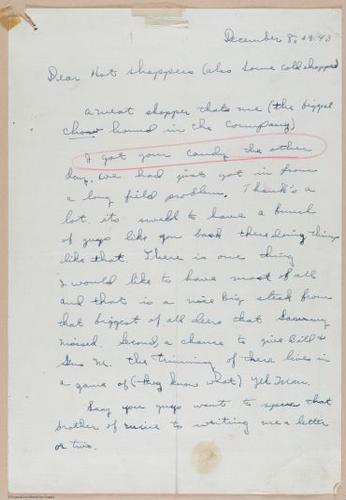 December 8, 1943
Dear Hot shoppers (also some cold shoppers)
A meat shopper thats me (the biggest
chow hound in the Company)
I got your candy the other
day, we had just got in from
a long field problem. Thank's a
lot, its swell to have a bunch
of guys like you back there doing things
like that. There is one thing
I would like to have most of all
and that is a nice big steak from
that biggest of all deer that Sammy
missed. Second, a chance to give Bill &
M. the trimming of there lives in
a game of (they know what) Yeh Man.
Say you guys want to spur that
brother of mine to writing me a letter
or two.